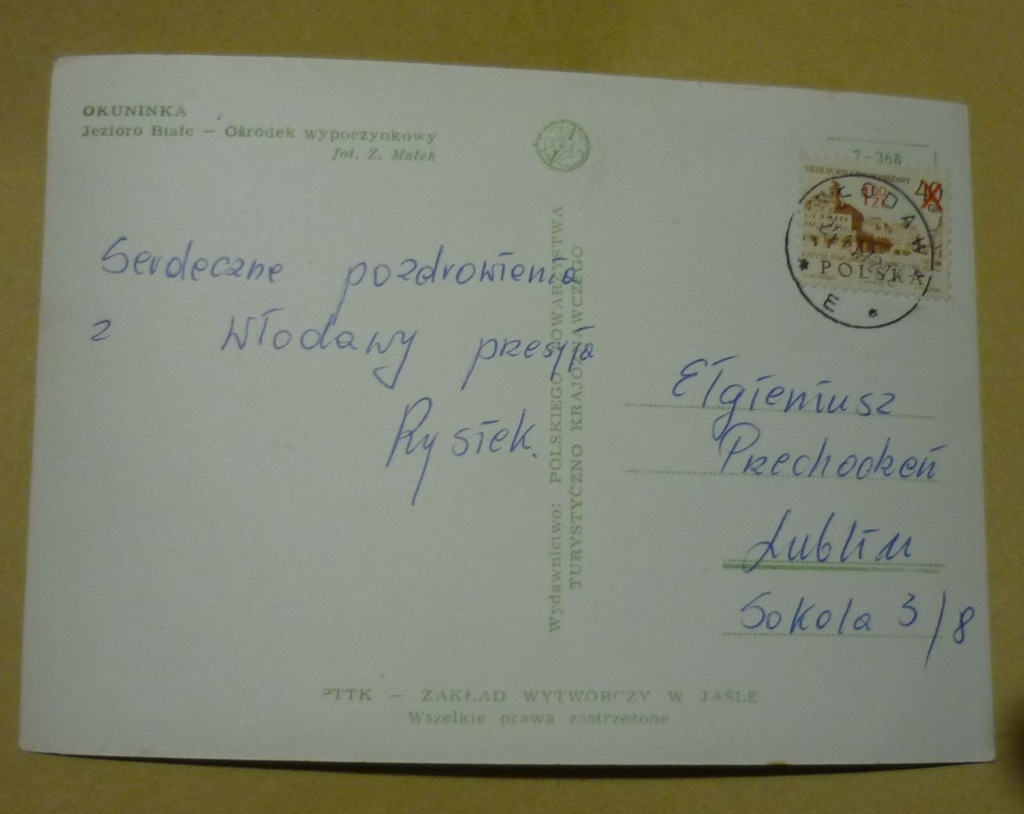 OKUNINKA
Jezioro Białe — Ośrodek wypoczynkowy
fot. Z. Małek
Serdeczne pozdrowienia
z Włodawy przesyła
Rysiek.
Wydawnictwo: POLSKIEGO TOWARZYSTWA
TURYSTYCZNO KRAJOZNAWCZEGO
7—368
40
POLSKA
WŁODAWA
E
Elgieniusz
Przechodzeń
Lublin
Sokola 3/8
PTTK — ZAKŁAD WYTWÓRCZY W JAŚLE
Wszelkie prawa zastrzeżone